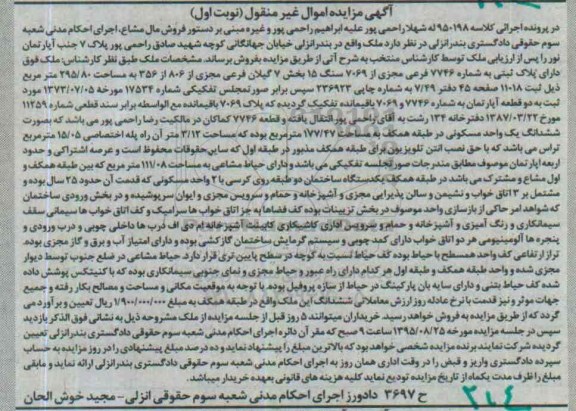 آگهی مزایده اموال غیر منقول (نوبت اول)
در پرونده اجرائی کلاسه ۹۵۰۱۹۸ له شهلا راحمی پور علیه ابراهیم راحمی پور و غیره مبنی بر دستور فروش مال مشاع، اجرای احکام مدنی شعبه
سوم حقوقی دادگستری بندرانزلی در نظر دارد ملک واقع در بندرانزلی خیابان جهانگانی کوچه شهید صادق راحمی پور پلاک ۷ جنب آپارتمان
نور را پس از ارزیابی ملک توسط کارشناس منتخب به شرح آتی از طریق مزایده بفروش برساند. مشخصات ملک طبق نظر کارشناس: ملک فوق
دارای پلاک ثبتی به شماره ۷۷۴۶ فرعی مجزی از ۷۰۶۹ سنگ ۱۵ بخش ۷ گیلان فرعی مجزی از ۸۰۶ از ۳۵۶ به مساحت ۲۹۵/۸۰ متر مربع
ذیل ثبت ۱۱۰۱۸ صفحه ۴۵ دفتر ۷/۴۹ به شماره چاپی ۲۳۶۹۲۳ سپس برابر صورتمجلس تفکیکی شماره ۱۷۵۳۴ مورخه ۱۳۷۳/۰۷/۰۵ مورد
ثبت به دو قطعه آپارتمان به شماره ۷۷۴۶ و ۷۰۶۹ باقیمانده تفکیک گردیده که پلاک ۷۰۶۹ باقیمانده مع الواسطه برابر سند قطعی شماره ۱۱۲۵۹
مورخ ۱۳۸۷/۰۳/۲۲ دفترخانه ۱۳۴ رشت به آقای راحمی پور انتقال یافته و قطعه ۷۷۴۶ کماکان در مالکیت رضا راحمی پور می باشد که بصورت
ششدانگ یک واحد مسکونی در طبقه همکف به مساحت ۱۷۷/۴۷ مترمربع بوده که مساحت ۳/۱۲ متر آن راه پله اختصاصی ۱۵/۰۵ مترمربع
تراس می باشد که با حق نصب آنتن تلویزیون برای طبقه همکف مذبور در طبقه اول که سایر حقوقات محفوظ است و عرصه اشتراکی و حدود
اربعه آپارتمان موصوف مطابق مندرجات صورتجلسه تفکیکی می باشد و دارای حیاط مشاعی به مساحت ۱۱۱/۰۸ متر مربع که بین طبقه همکف و
اول مشاع و مشترک می باشد در طبقه همکف یکدستگاه ساختمان دو طبقه روی کرسی با ۲ واحد مسکونی که قدمت آن حدود ۲۵ سال بوده و
مشتمل بر ۳ اتاق خواب و نشیمن و سالن پذیرایی مجزی و آشپزخانه و حمام و سرویس مجزی و ایوان سرپوشیده و در بخش ورودی ساختمان
که شواهد امر حاکی از بازسازی واحد موصوف در بخش تزیینات بوده کف فضاها به جز اتاق خواب ها سرامیک و کف اتاق خواب ها سیمانی سقف
سیمانکاری و رنگ آمیزی و آشپزخانه و حمام و سرویس دارای کاشیکاری کابینت آشپزخانه ام دی اف درب ها داخلی چوبی و درب ورودی و
پنجره ها آلومینیومی هر دو اتاق خواب دارای کمد چوبی و سیستم گرمایش ساختمان گازکشی بوده و دارای امتیاز آب و برق و گاز مجزی بوده.
تراز ارتفاعی کف واحد همسطح با حیاط بوده کف حیاط نسبت به کوچه در سطح پایین تری قرار دارد. حیاط مشاعی در ضلع جنوب توسط دیوار
مجزی شده و واحد طبقه همکف و طبقه اول هر کدام دارای راه عبور و حیاط مجزی و نمای جنوبی سیمانکاری بوده که با کنیتکس پوشش داده
شده کف حیاط بتنی و دارای سایه بان پارکینگ در حیاط از سازه پروفیل بوده. با توجه به موقعیت مکانی و مساحت و مصالح بکار رفته و جمیع
جهات موثر و نیز قدمت با نرخ عادله روز ارزش معاملاتی ششدانگ این ملک واقع در طبقه همکف به مبلغ ۱/۹۰۰/۰۰۰/۰۰۰ ریال تعیین و برآورد می
گردد که از طریق مزایده به فروش خواهد رسید. خریداران میتوانند ۵ روز قبل از جلسه مزایده از ملک مشروحه ذیل به نشانی فوق الذکر بازدید
سپس در جلسه مزایده مورخه ۱۳۹۵/۰۸/۲۵ ساعت ۹ صبح که مقر آن دائره اجرای احکام مدنی شعبه سوم حقوقی دادگستری بندرانزلی تعیین
گردیده شرکت نمایند برنده مزایده شخصی خواهد بود که بالاترین مبلغ را پیشنهاد نماید و ده درصد مبلغ پیشنهادی را در روز مزایده به حساب
سپرده دادگستری واریز و قبض را در وقت اداری همان روز به اجرای احکام مدنی شعبه سوم حقوقی دادگستری بندرانزلی ارائه نماید و مابقی
مبلغ را ظرف مدت یکماه از تاریخ مزایده تودیع نماید کلیه هزینه های قانونی بعهده خریدار میباشد.
ح ۳۶۹۷ دادورز اجرای احکام مدنی شعبه سوم حقوقی انزلی - مجید خوش الحان